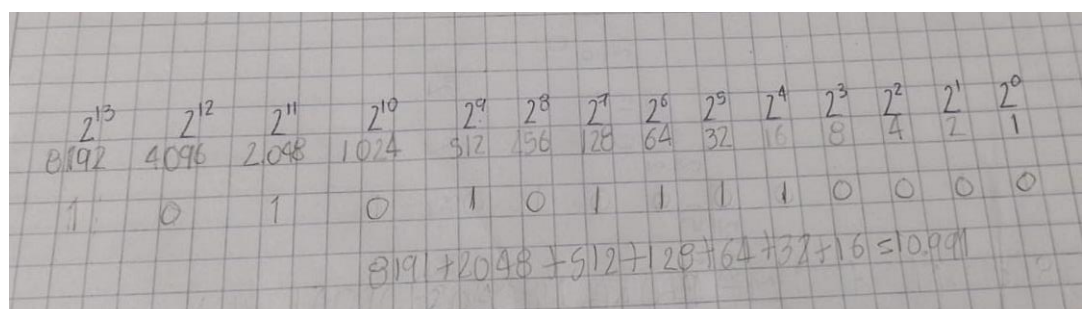 2¹³ 2¹² 2¹¹ 2¹⁰ 2⁹ 2⁸ 2⁷ 2⁶ 2⁵ 2⁴ 2³ 2² 2¹ 2⁰
8192 4096 2048 1024 512 256 128 64 32 16 8 4 2 1
1 0 1 0 1 0 1 1 1 1 0 0 0 0
8191+2048+512+128+64+32+16=10.991